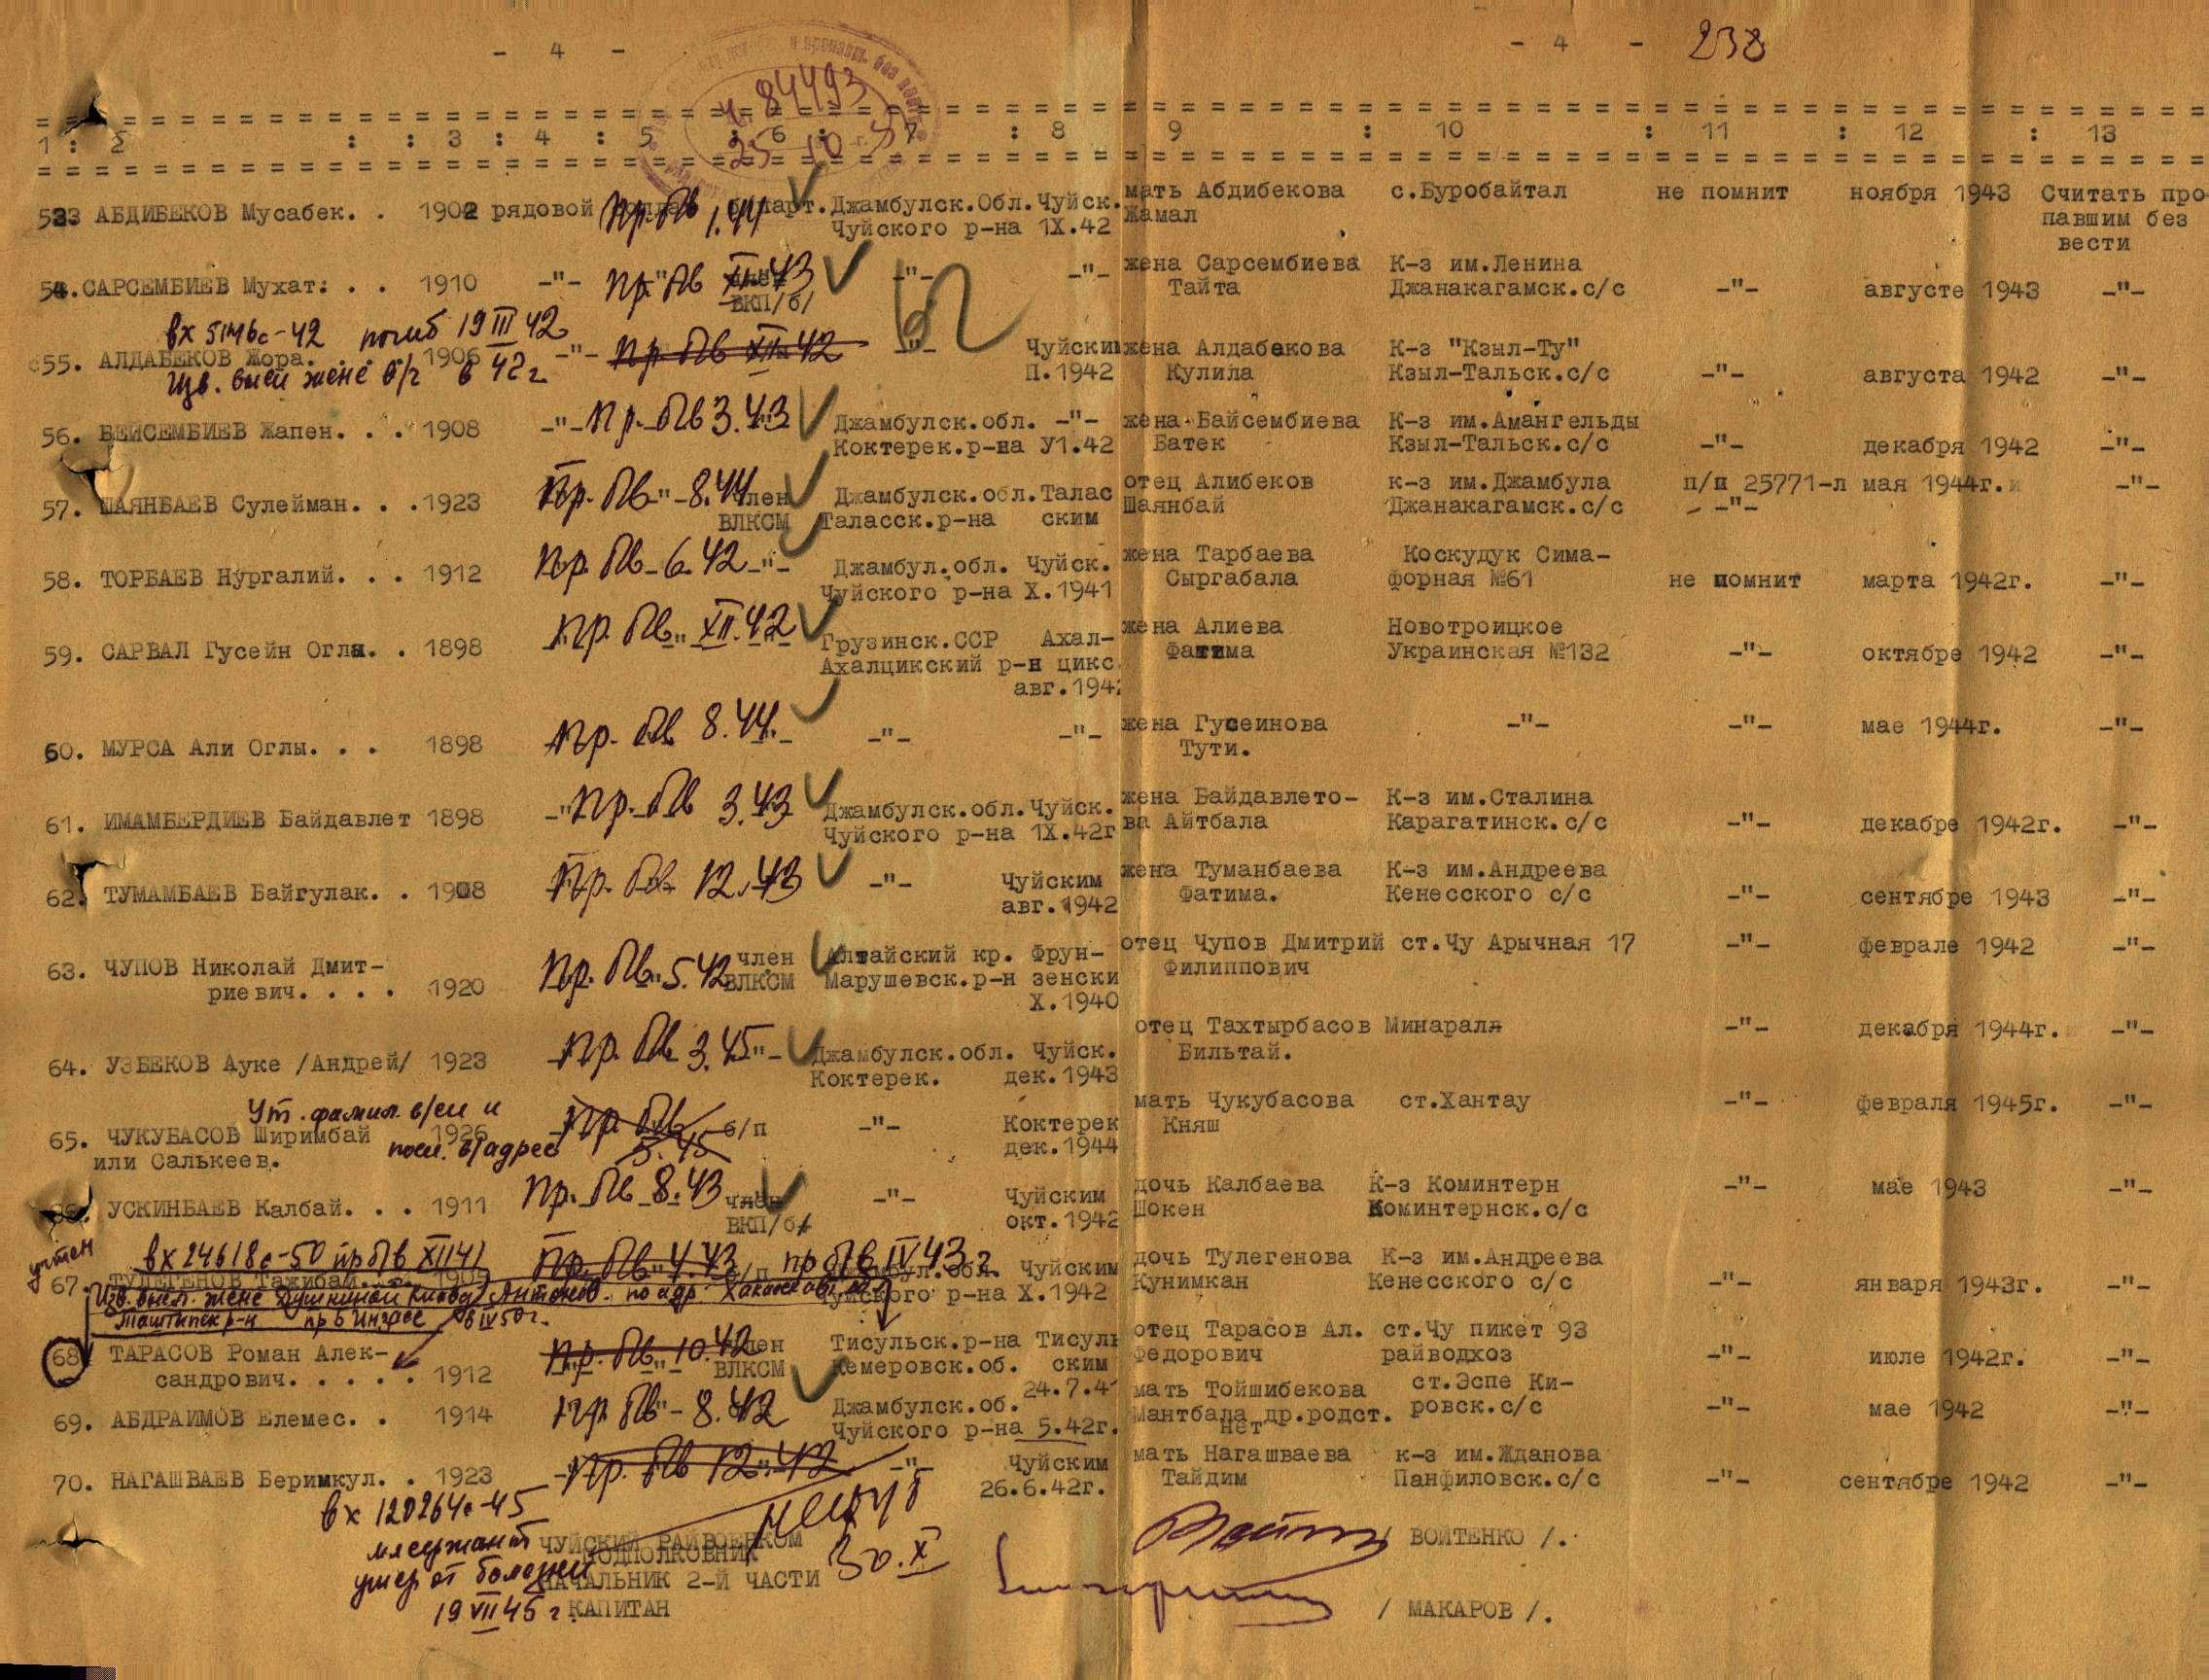 - 4 -
- 4 - 238
№ 84493
25 10
1 : 2 : : 3 : 4 : 5 : 6 : 7 : 8 9 : 10 : 11 : 12 : 13
533 АБДИБЕКОВ Мусабек. . 1902 рядовой пр. бв 1.44 Джамбулск.Обл.Чуйск. мать Абдибекова с.Буробайтал не помнит ноября 1943 Считать про
Чуйского р-на 1Х.42 Жамал павшим без
вести
54.САРСЕМБИЕВ Мухат: . . 1910 -"- пр бв XI 43 -"- -"- жена Сарсембиева К-з им.Ленина
ВКП/б/ Тайта Джанакагамск.с/с -"- августе 1943 -"-
вх 5146с-42 погиб 19 III 42
55. АЛДАБЕКОВ Жора. . . 1906 -"- пр бв XII 42 -"- Чуйским жена Алдабекова К-з "Кзыл-Ту"
Изв. выси жене б/г 6 42 г П.1942 Кулила Кзыл-Тальск.с/с -"- августа 1942 -"-
56. БЕЙСЕМБИЕВ Жапен. . . 1908 -"- пр. бв 3.43 Джамбулск.обл. -"- жена Байсембиева К-з им.Амангельды
Коктерек.р-на У1.42 Батек Кзыл-Тальск.с/с -"- декабря 1942 -"-
57. ШАЯНБАЕВ Сулейман. . .1923 пр. бв -"- 8.44 член Джамбулск.обл.Талас отец Алибеков к-з им.Джамбула п/п 25771-л мая 1944г. -"-
ВЛКСМ Таласск.р-на ским Шаянбай Джанакагамск.с/с -"-
58. ТОРБАЕВ Нургалий. . . 1912 пр. бв 6.42 -"- Джамбул.обл. Чуйск. жена Тарбаева Коскудук Сима-
Чуйского р-на Х.1941 Сыргабала форная №61 не помнит марта 1942г. -"-
59. САРВАЛ Гусейн Оглы. . 1898 пр. бв XII.42 Грузинск.ССР Ахал- жена Алиева Новотроицкое
Ахалцикский р-н цикс. Фатима Украинская №132 -"- октябре 1942 -"-
авг.1942
60. МУРСА Али Оглы. . . 1898 пр. бв 8.44. -"- -"- жена Гусеинова -"- -"- мае 1944г. -"-
Тути.
61. ИМАМБЕРДИЕВ Байдавлет 1898 -"- пр. бв 3.43 Джамбулск.обл.Чуйск. жена Байдавлето- К-з им.Сталина
Чуйского р-на 1Х.42г ва Айтбала Карагатинск.с/с -"- декабре 1942г. -"-
62. ТУМАМБАЕВ Байгулак. . 1908 пр. бв 12.43 -"- Чуйским жена Туманбаева К-з им.Андреева
авг.1942 Фатима. Кенесского с/с -"- сентябре 1943 -"-
63. ЧУПОВ Николай Дмит- пр. бв 5.42 член Алтайский кр. Фрун- отец Чупов Дмитрий ст.Чу Арычная 17 -"- феврале 1942 -"-
риевич. . . . 1920 ВЛКСМ Марушевск.р-н зенски Филиппович
Х.1940
64. УЗБЕКОВ Ауке /Андрей/ 1923 пр. бв 3.45 -"- Джамбулск.обл. Чуйск. отец Тахтырбасов Минараля -"- декабря 1944г. -"-
Коктерек. дек.1943 Бильтай.
Ут. фамил. в/сл и
65. ЧУКУБАСОВ Ширимбай 1926 пр. бв 5.45 б/п -"- Коктерек мать Чукубасова ст.Хантау -"- февраля 1945г. -"-
или Салькеев. посл. в/адрес дек.1944 Княш
66. УСКИНБАЕВ Калбай. . . 1911 пр. бв 8.43 член -"- Чуйским дочь Калбаева К-з Коминтерн -"- мае 1943 -"-
ВКП/б/ окт.1942 Шокен Коминтернск.с/с
учтен вх 24618с-50 пр бв XII 41 пр. бв 4.43 пр бв IV 43 г
67. ТУЛЕГЕНОВ Тажибай. . . 1905 б/п Джамбул.обл. Чуйским дочь Тулегенова К-з им.Андреева
Чуйского р-на Х.1942 Кунимкан Кенесского с/с -"- января 1943г. -"-
Таштипск р-н 6 IV 50 г.
68 ТАРАСОВ Роман Алек- пр. бв 10.42 член Тисульск.р-на Тисуль отец Тарасов Ал. ст.Чу пикет 93
сандрович. . . . . 1912 ВЛКСМ Кемеровск.об. ским Федорович райводхоз -"- июле 1942г. -"-
24.7.41
69. АБДРАИМОВ Елемес. . 1914 пр. бв -"- 8.42 Джамбулск.об. мать Тойшибекова ст.Эспе Ки-
Чуйского р-на 5.42г. Мантбала др.родст. ровск.с/с -"- мае 1942 -"-
нет
70. НАГАШВАЕВ Беримкул. . 1923 -"- пр. бв 12.42 -"- Чуйским мать Нагашваева к-з им.Жданова
26.6.42г. Тайдим Панфиловск.с/с -"- сентябре 1942 -"-
вх 120264с-45
мл сержант
умер от болезни
19 VII 45 г.
30.X
ЧУЙСКИЙ РАЙВОЕНКОМ
ПОДПОЛКОВНИК / ВОЙТЕНКО /.
НАЧАЛЬНИК 2-Й ЧАСТИ
КАПИТАН / МАКАРОВ /.